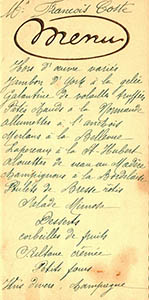 Mr François Coste
Menu
Hors d'œuvre variés
Jambon d'York à la gelée
Galantine de volaille truffée
Pâtés chauds à la Normande
Allumettes à l'anchois
Merlans à la Bellevue
Lapereau à la St Hubert
Alouettes de veau au Madère
Champignons à la Bordelaise
Poulets de Bresse rôtis
Salade
Desserts
corbeilles de fruits
crème
Petits fours
Vins divers Champagne